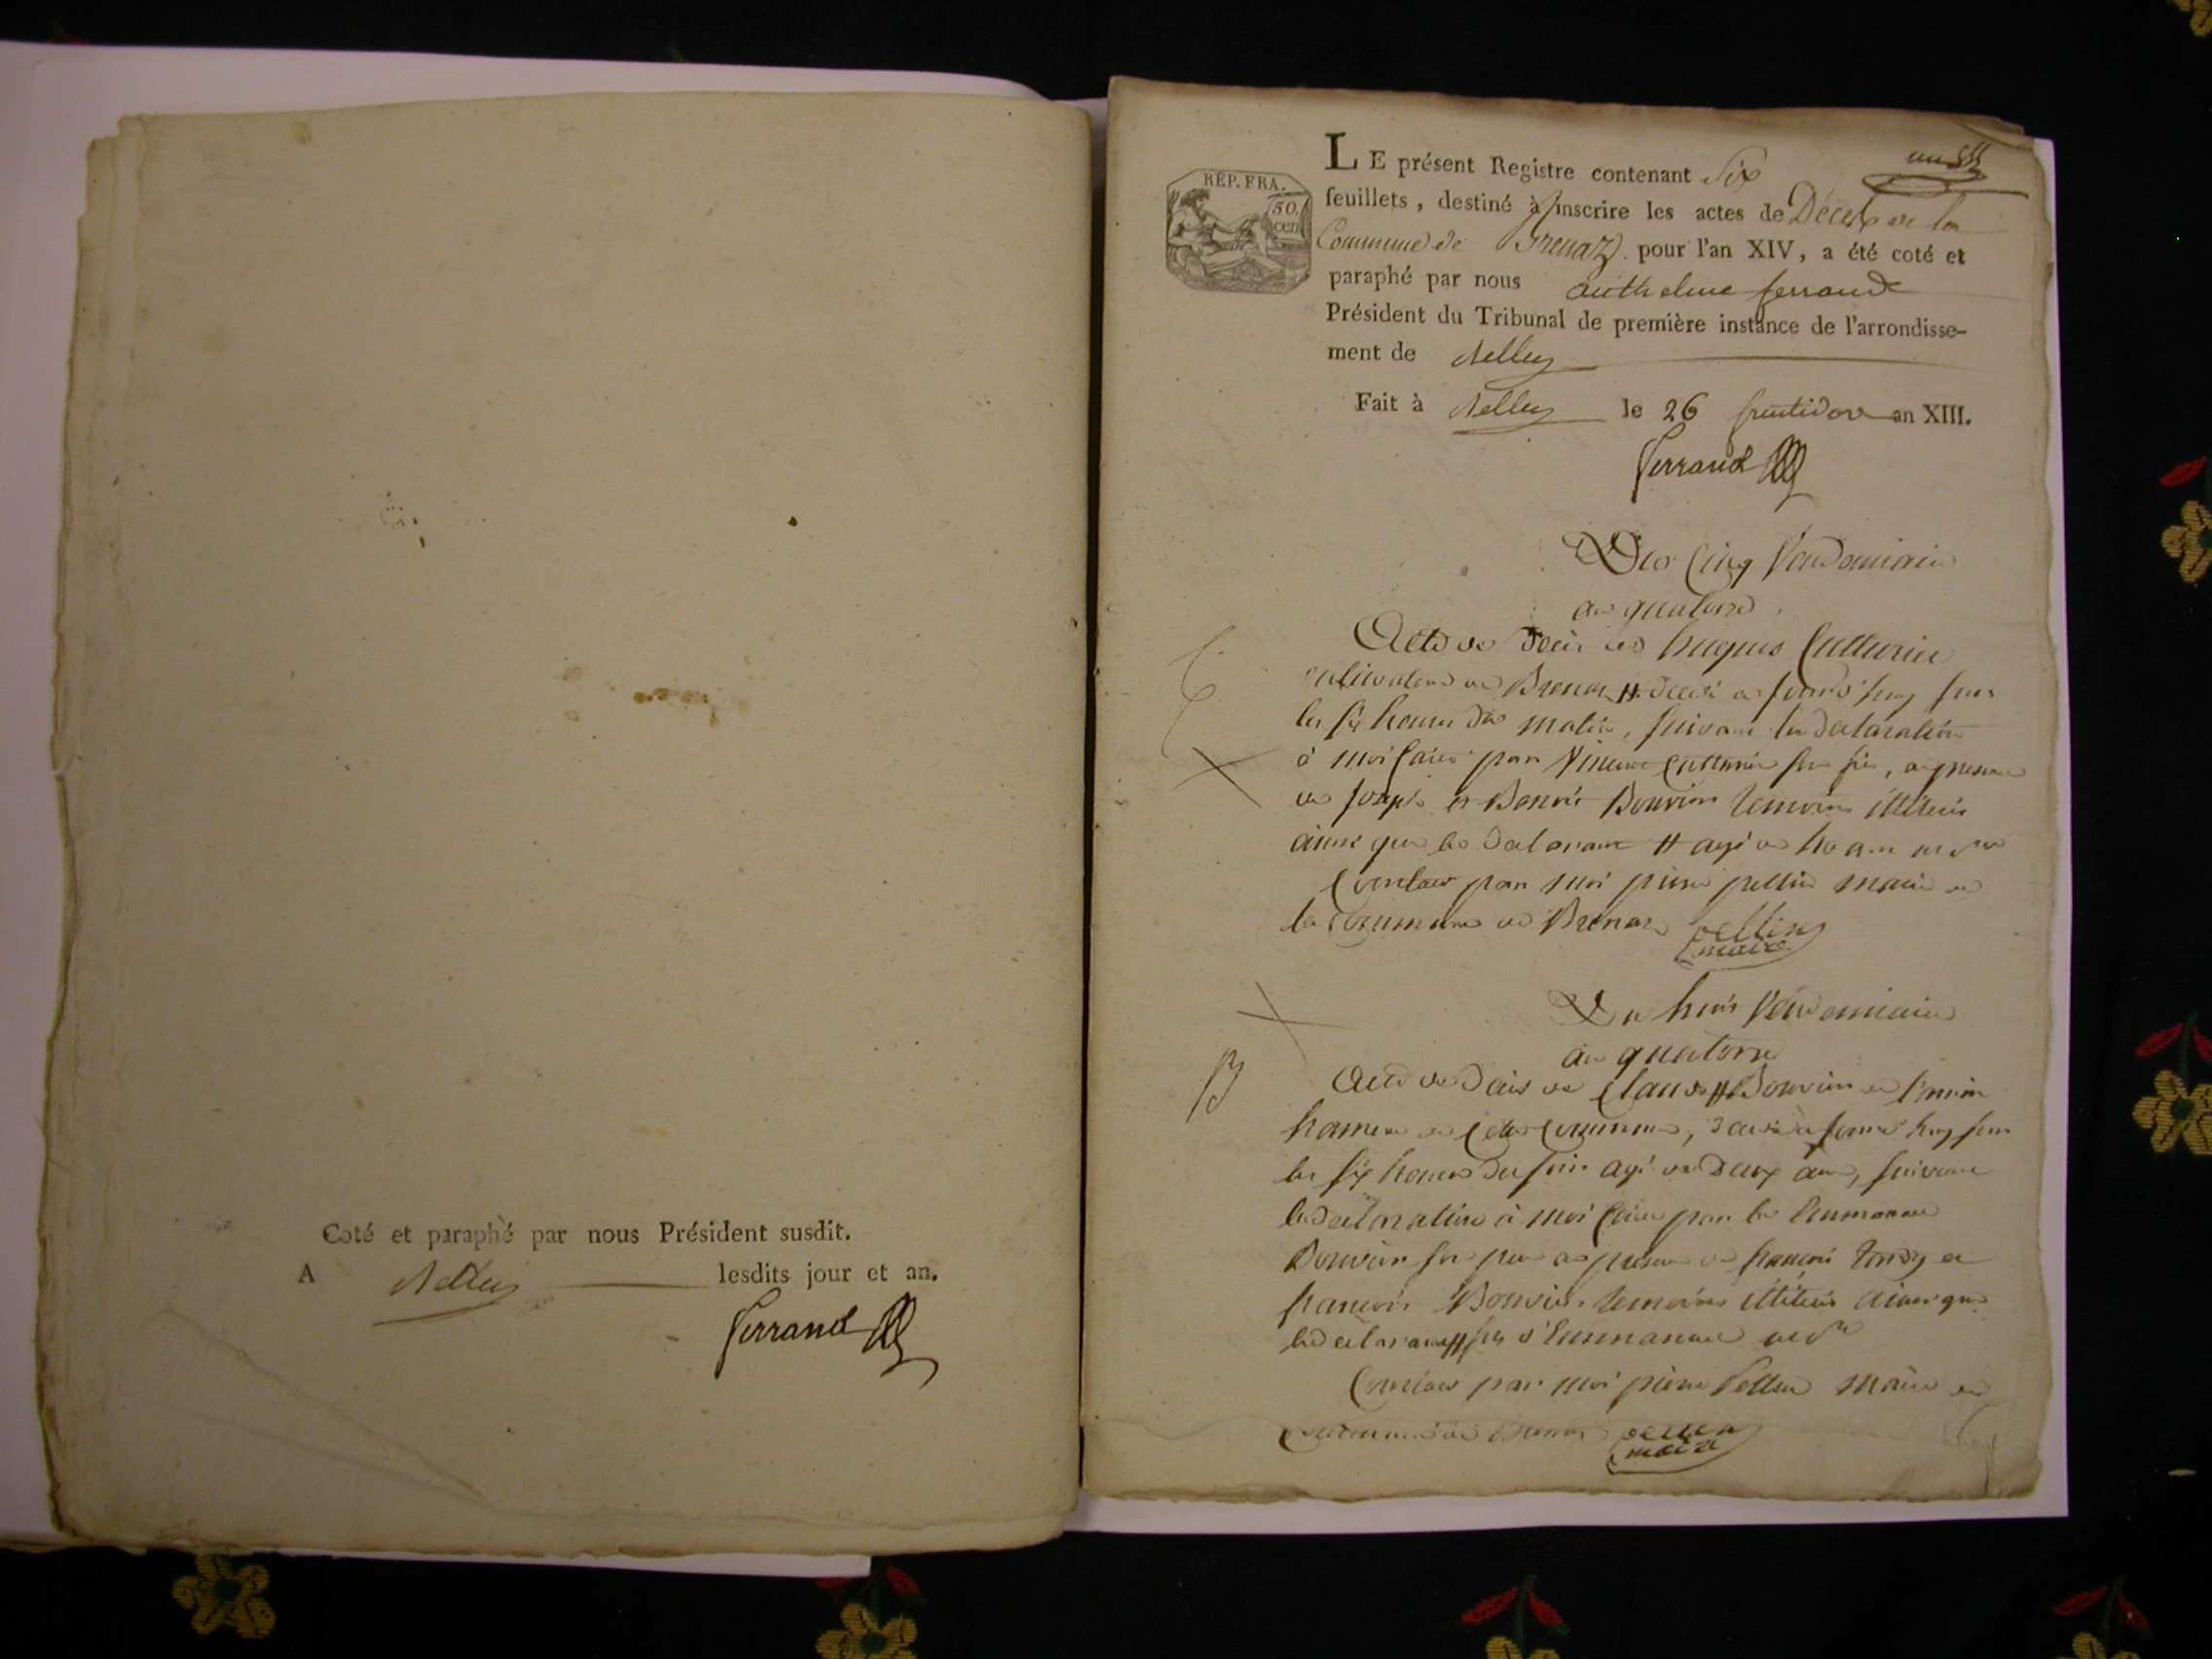 Coté et paraphé par nous Président susdit.
A Belley lesdits jour et an.
Ferrand
un
REP. FRA.
50.
cen
LE présent Registre contenant Six
feuillets, destiné à inscrire les actes de Décès de la
Commune de Brenaz pour l'an XIV, a été coté et
paraphé par nous anthelme ferrand
Président du Tribunal de première instance de l'arrondisse-
ment de Belley
Fait à Belley le 26 fructidor an XIII.
Ferrand
Du Cinq Vendemiaire
an quatorze
Acte de décès de hugues Cullerier
cultivateur de Brenaz decédé
les six heures du matin, suivant la declaration
à moi faite par Vincent Cullerier son fils, en presence
de Joseph et Benoit Bouvier temoins illiterés
ainsi que le declarant
Constaté par moi pierre pellin maire de
la Commune de Brenaz pellin
maire
Du huit Vendemiaire
an quatorze
B
Acte de décès de Claude Bouvier
hameau de cette Commune, decedé
les six heures du soir agé de deux ans, suivant
la declaration à moi faite par
Bouvier son pere en presence de francois et
francois Bouvier temoins illiterés ainsi que
le declarant fils d'Emmanuel
Constaté par moi pierre Pellin maire de
Commune de Brenaz pellin
maire